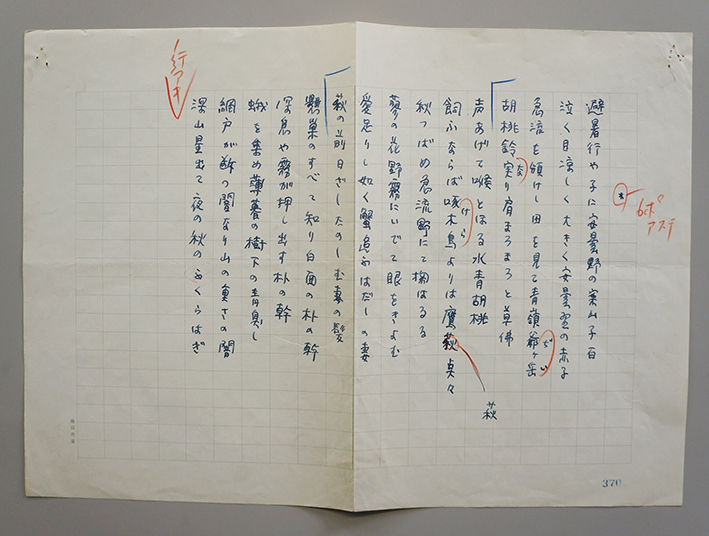 6ポ
アステ
*
避暑行や子に安曇野の案山子百
泣く目涼しく大きく安曇の赤子
急流を傾けし田を見て青嶺爺ヶ岳
ぢい
胡桃鈴実り肩まろまろと草佛
な
声あげて喉とほる水青胡桃
飼ふならば啄木鳥よりは鷹萩々
けら
萩
秋つばめ急流野にて掬はるる
蓼の花野霧にいでて眼をきよむ
愛足りし如く蟹追ふはだしの妻
萩の前日ざしたのしむ妻の髪
懸巣のすべて知り白面の朴の幹
深息や霧が押し出す朴の幹
蛾を集め薄暮の樹下の青臭し
網戸が断つ闇なり山のさの闇
深山星出て夜の秋のふくらはぎ
行アキ
370